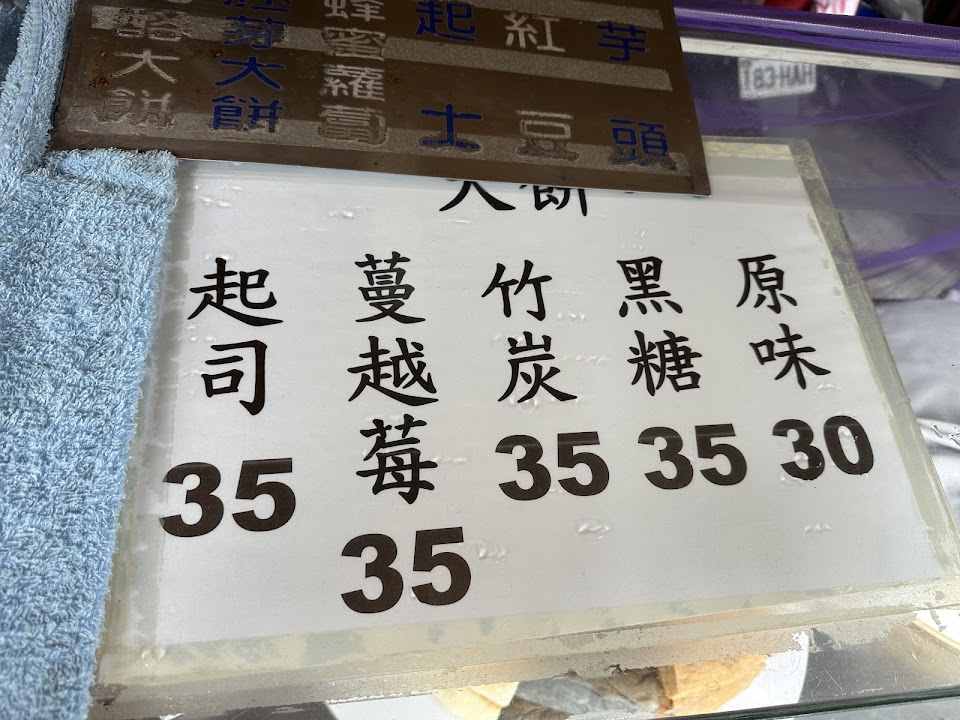 芋頭
紅豆
起士
蜂蜜蘿
胚芽大餅
酪大餅
大餅
原味
30
黑糖
35
竹炭
35
蔓越莓
35
起司
35